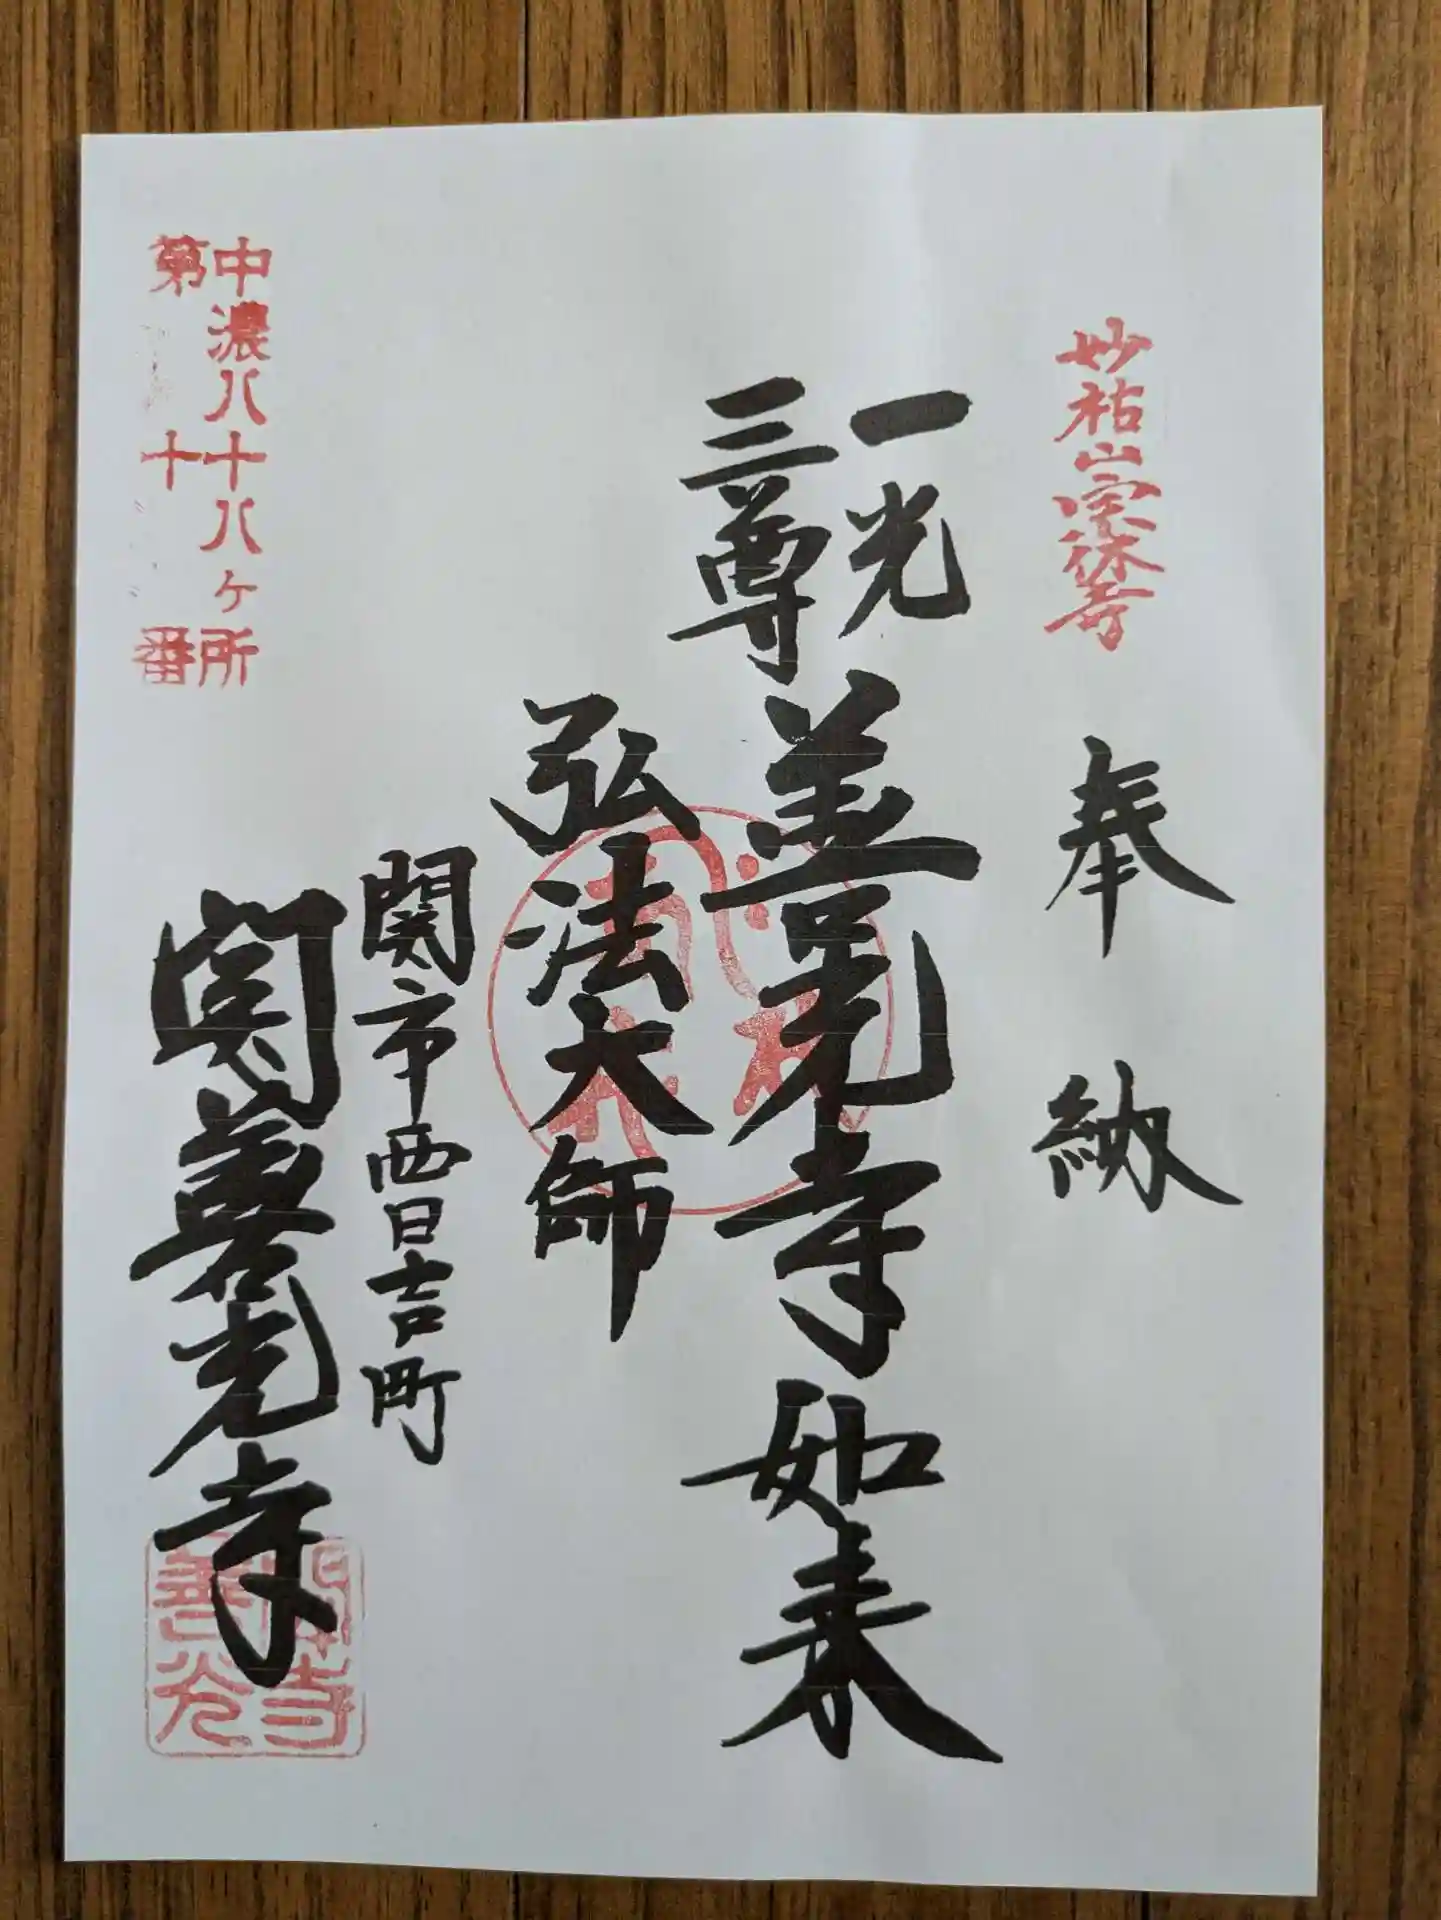 妙祐山宗休寺
奉納
一光
三尊
善光寺如来
弘法大師
関市西日吉町
関善光寺
中濃八十八ヶ所
第十番
関寺
善光